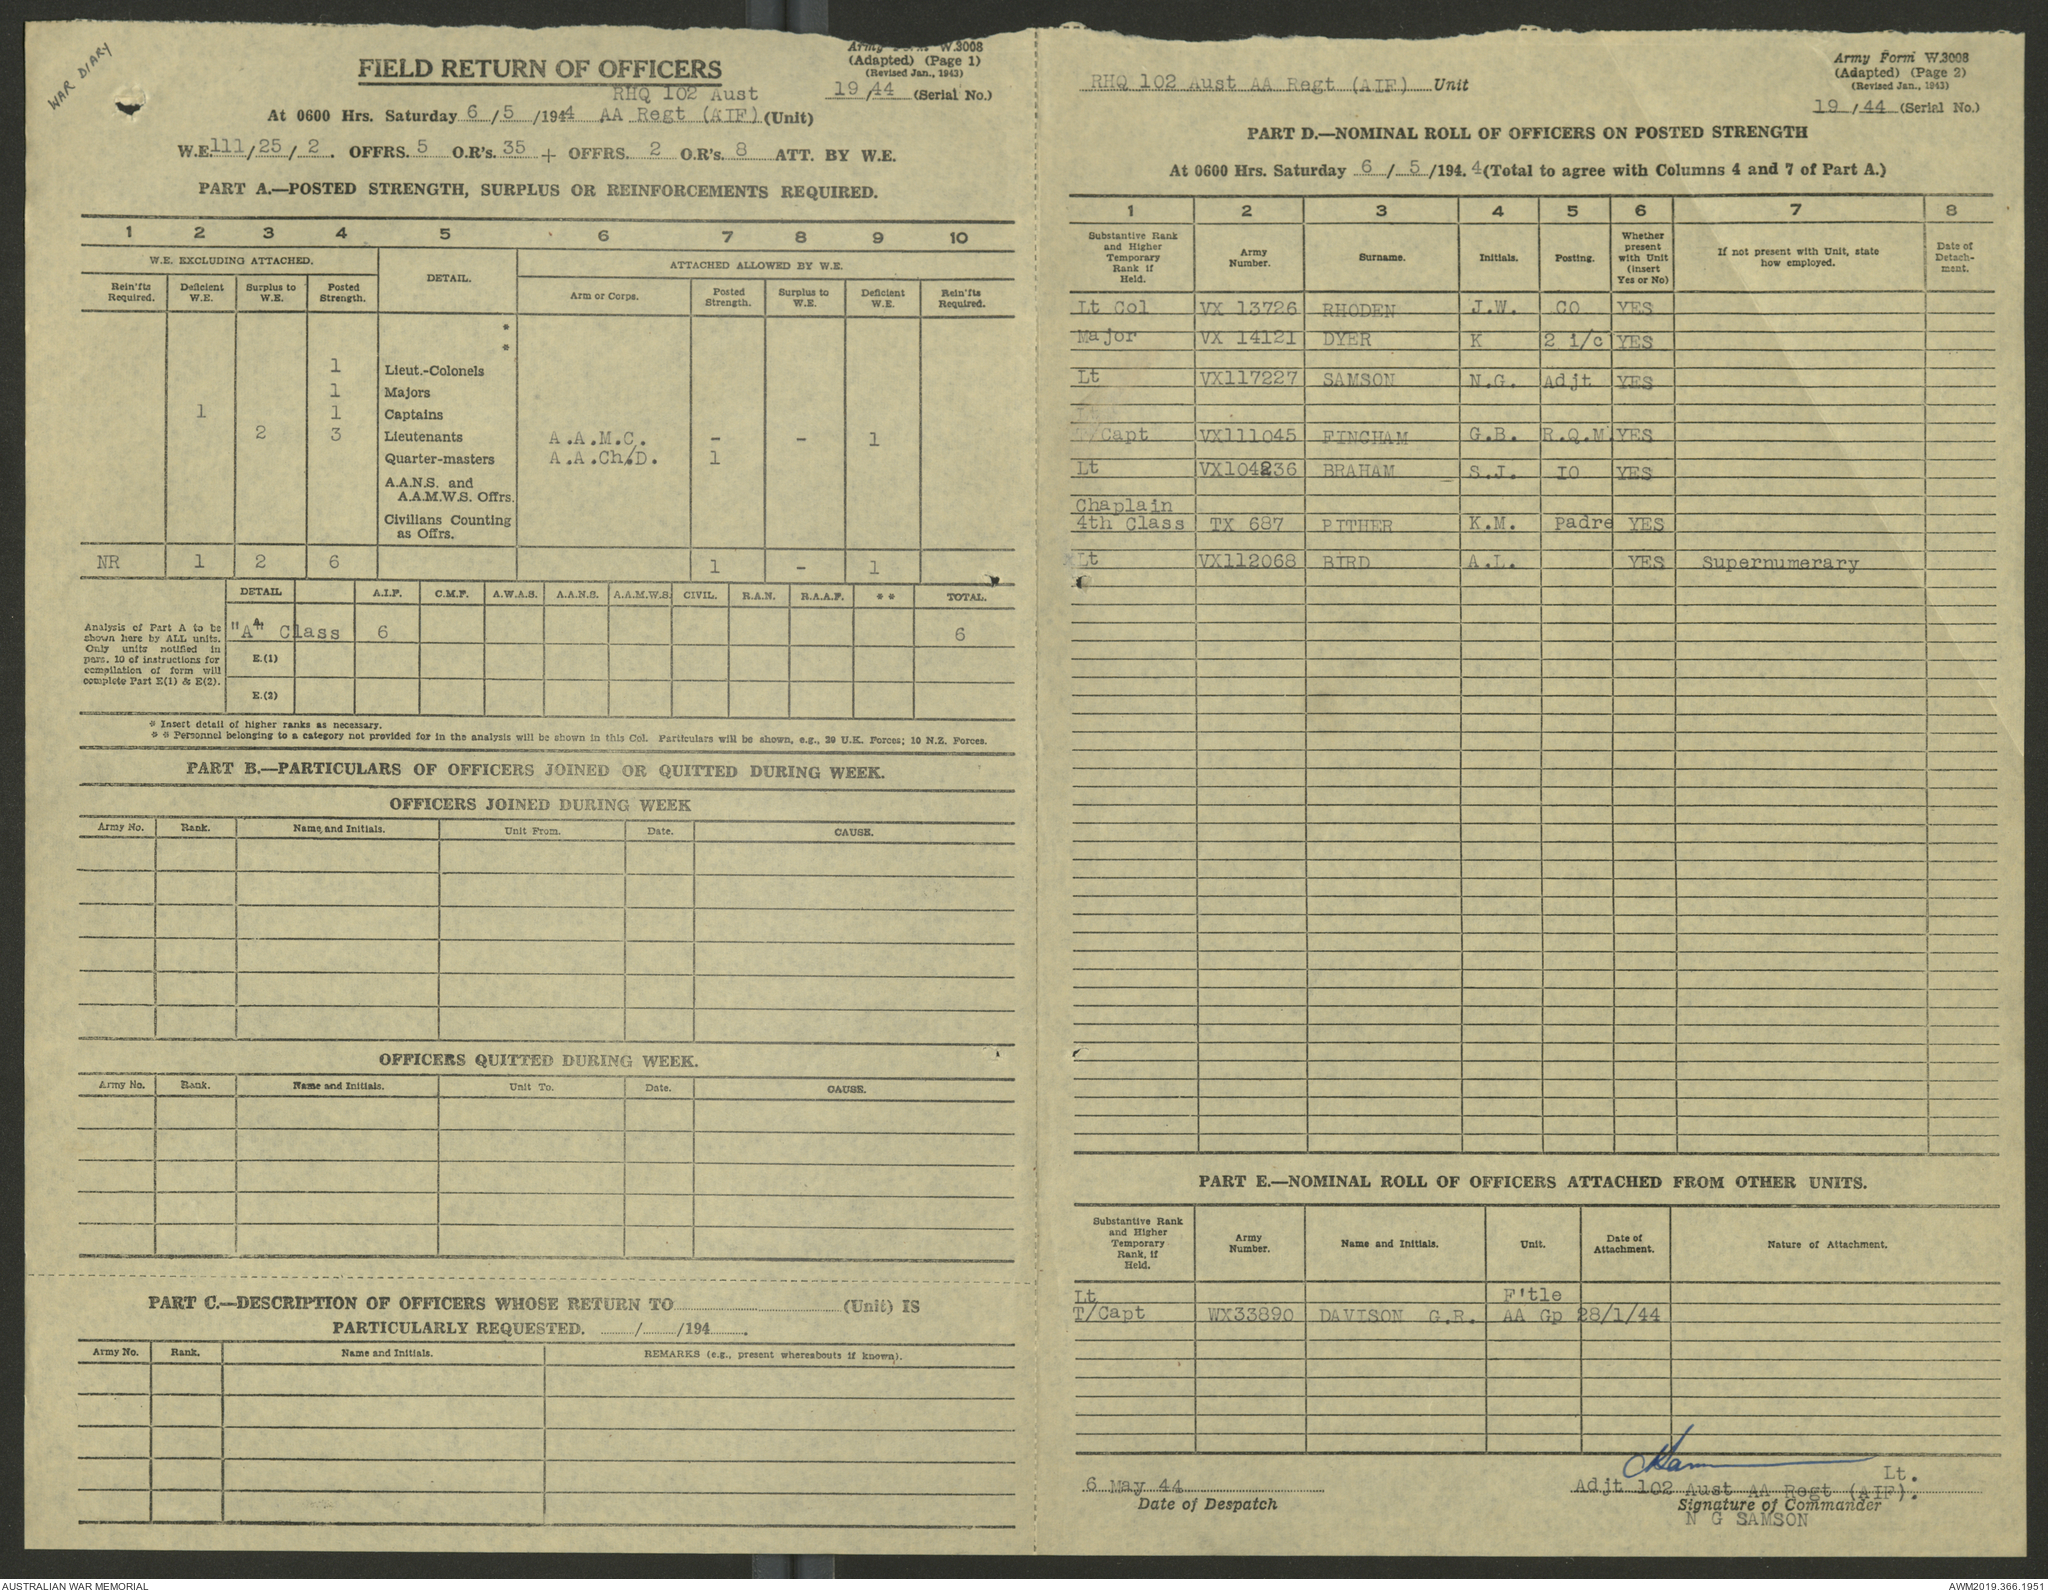 WAR DIARY
Army Form W.3008
(Adapted) (Page 1)
(Revised Jan., 1943)
FIELD RETURN OF OFFICERS
19/44 (Serial No.)
RHQ 102 Aust
At 0600 Hrs. Saturday 6/5/1944 AA Regt (AIF) (Unit)
W.E. 111/25/2. OFFRS. 5 O.R's. 35 + OFFRS. 2 O.R's. 8 ATT. BY W.E.
PART A.—POSTED STRENGTH, SURPLUS OR REINFORCEMENTS REQUIRED.
1 2 3 4 5 6 7 8 9 10
W.E. EXCLUDING ATTACHED. DETAIL. ATTACHED ALLOWED BY W.E.
Rein'fts Required. Deficient W.E. Surplus to W.E. Posted Strength. Arm or Corps. Posted Strength. Surplus to W.E. Deficient W.E. Rein'fts Required.
*
*
1 Lieut.-Colonels
1 Majors
1 1 Captains
2 3 Lieutenants A.A.M.C. - - 1
Quarter-masters A.A.Ch.D. 1
A.A.N.S. and
A.A.M.W.S. Offrs.
Civilians Counting
as Offrs.
NR 1 2 6 1 - 1
DETAIL A.I.F. C.M.F. A.W.A.S. A.A.N.S. A.A.M.W.S. CIVIL. R.A.N. R.A.A.F. ** TOTAL.
Analysis of Part A to be
shown here by ALL units.
Only units notified in
para. 10 of instructions for
compilation of form will
complete Part E(1) & E(2).
"A" Class 6 6
E.(1)
E.(2)
* Insert detail of higher ranks as necessary.
** Personnel belonging to a category not provided for in the analysis will be shown in this Col. Particulars will be shown, e.g., 20 U.K. Forces; 10 N.Z. Forces.
PART B.—PARTICULARS OF OFFICERS JOINED OR QUITTED DURING WEEK.
OFFICERS JOINED DURING WEEK
Army No. Rank. Name and Initials. Unit From. Date. CAUSE.
OFFICERS QUITTED DURING WEEK.
Army No. Rank. Name and Initials. Unit To. Date. CAUSE.
PART C.—DESCRIPTION OF OFFICERS WHOSE RETURN TO (Unit) IS
PARTICULARLY REQUESTED. / /194 .
Army No. Rank. Name and Initials. REMARKS (e.g., present whereabouts if known).
Army Form W.3008
(Adapted) (Page 2)
(Revised Jan., 1943)
RHQ 102 Aust AA Regt (AIF) Unit
19/44 (Serial No.)
PART D.—NOMINAL ROLL OF OFFICERS ON POSTED STRENGTH
At 0600 Hrs. Saturday 6/5/194.4 (Total to agree with Columns 4 and 7 of Part A.)
1 2 3 4 5 6 7 8
Substantive Rank and Higher Temporary Rank if Held. Army Number. Surname. Initials. Posting. Whether present with Unit (insert Yes or No) If not present with Unit, state how employed. Date of Detachment.
Lt Col VX 13726 RHODEN J.W. CO YES
Major VX 14121 DYER K 2 i/c YES
Lt VX117227 SAMSON N.G. Adjt YES
Lt
T/Capt VX111045 FINCHAM G.B. R.Q.M. YES
Lt VX104236 BRAHAM S.J. IO YES
Chaplain
4th Class TX 687 PITHER K.M. Padre YES
Lt VX112068 BIRD A.L. YES Supernumerary
PART E.—NOMINAL ROLL OF OFFICERS ATTACHED FROM OTHER UNITS.
Substantive Rank and Higher Temporary Rank, if Held. Army Number. Name and Initials. Unit. Date of Attachment. Nature of Attachment.
Lt F'tle
T/Capt WX33890 DAVISON G.R. AA Gp 28/1/44
6 May 44
Date of Despatch
Lt.
Adjt 102 Aust AA Regt (AIF).
Signature of Commander
N G SAMSON
AUSTRALIAN WAR MEMORIAL
AWM2019.366.1951